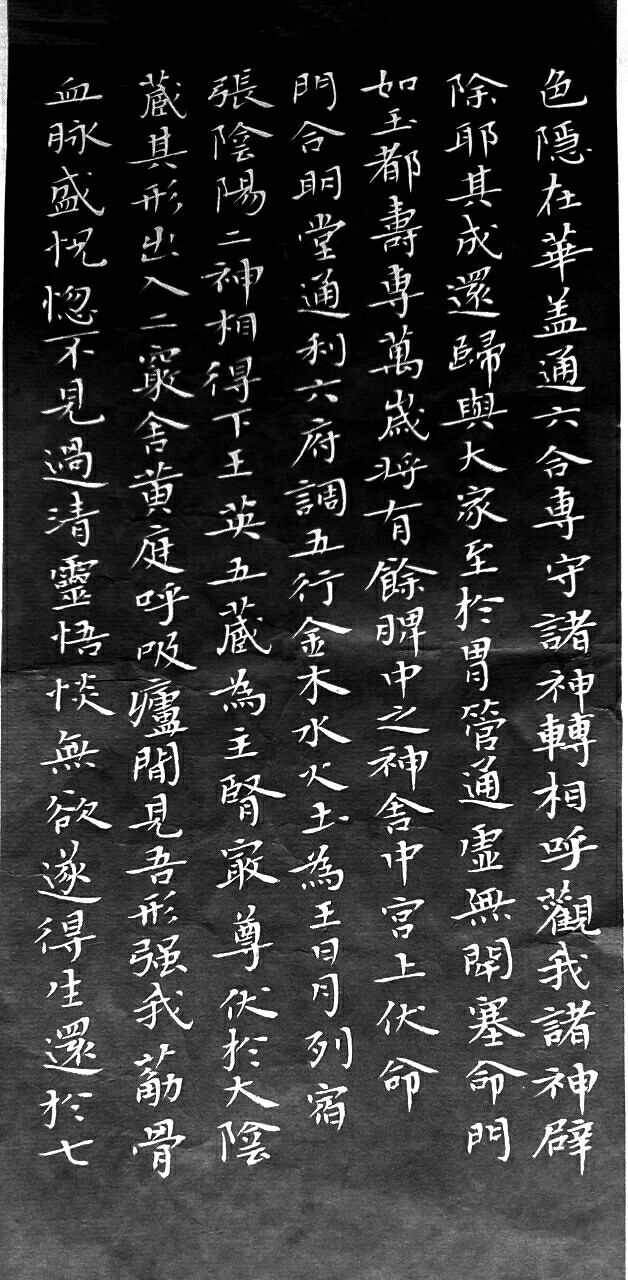 色隱在華盖通六合専守諸神轉相呼觀我諸神辟
除耶其成還歸與大家至於胃管通虛無閇塞命門
如玉都壽専萬歲将有餘脾中之神舍中宮上伏命
門合眀堂通利六府調五行金木水火土為王日月列宿
張陰陽二神相得下玉英五藏為主腎㝡尊伏於大陰
藏其形出入二竅舍黄庭呼吸廬閒見吾形强我茄骨
血脉盛怳惚不見過清靈恬惔無欲遂得生還於七